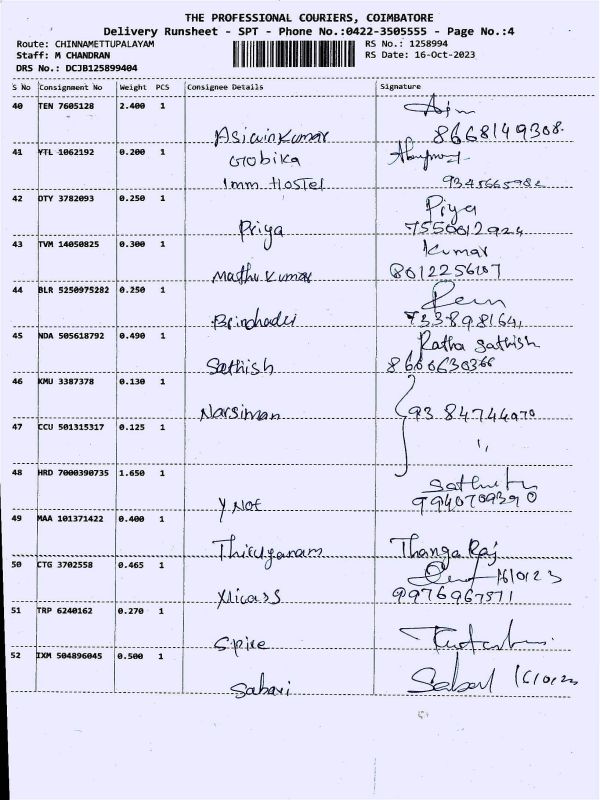 THE PROFESSIONAL COURIERS, COIMBATORE
Delivery Runsheet - SPT - Phone No.:0422-3505555 - Page No.:4
Route: CHINNAMETTUPALAYAM RS No.: 1258994
Staff: M CHANDRAN RS Date: 16-Oct-2023
DRS No.: DCJB125899404
S No Consignment No Weight PCS Consignee Details Signature
40 TEN 7605128 2.400 1
Asiwinkumar 8668149308.
41 YTL 1062192 0.200 1 Gobika
Imm Hostel 9345665982
42 OTY 3782093 0.250 1 Priya
Priya 7550012924
43 TVM 14050825 0.300 1 Kumar
Mathu Kumar 8012256107
44 BLR 5250975282 0.250 1
733898164,
45 NDA 505618792 0.490 1 Ratha Sathish
Sathish 8660630366
46 KMU 3387378 0.130 1
Narsiman 9384744070
47 CCU 501315317 0.125 1
48 HRD 7000390735 1.650 1
Y Not 9940709390
49 MAA 101371422 0.400 1
Thangaraj
50 CTG 3702558 0.465 1 16/10/23
9976967371
51 TRP 6240162 0.270 1
Spire
52 IXM 504896045 0.500 1
Sabari